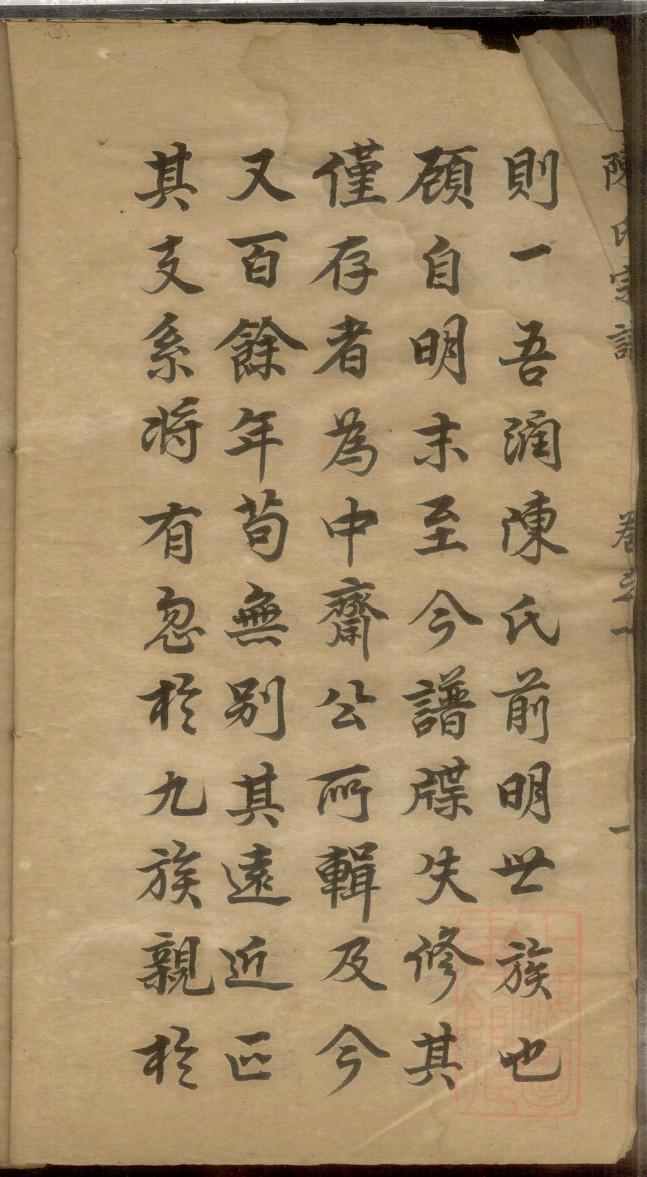 陳氏宗譜 卷之一 一
則一吾潤陳氏前明世族也
顧自明末至今譜牒失修其
僅存者為中齋公所輯及今
又百餘年苟無别其遠近疋
其支系将有忽於九族親於